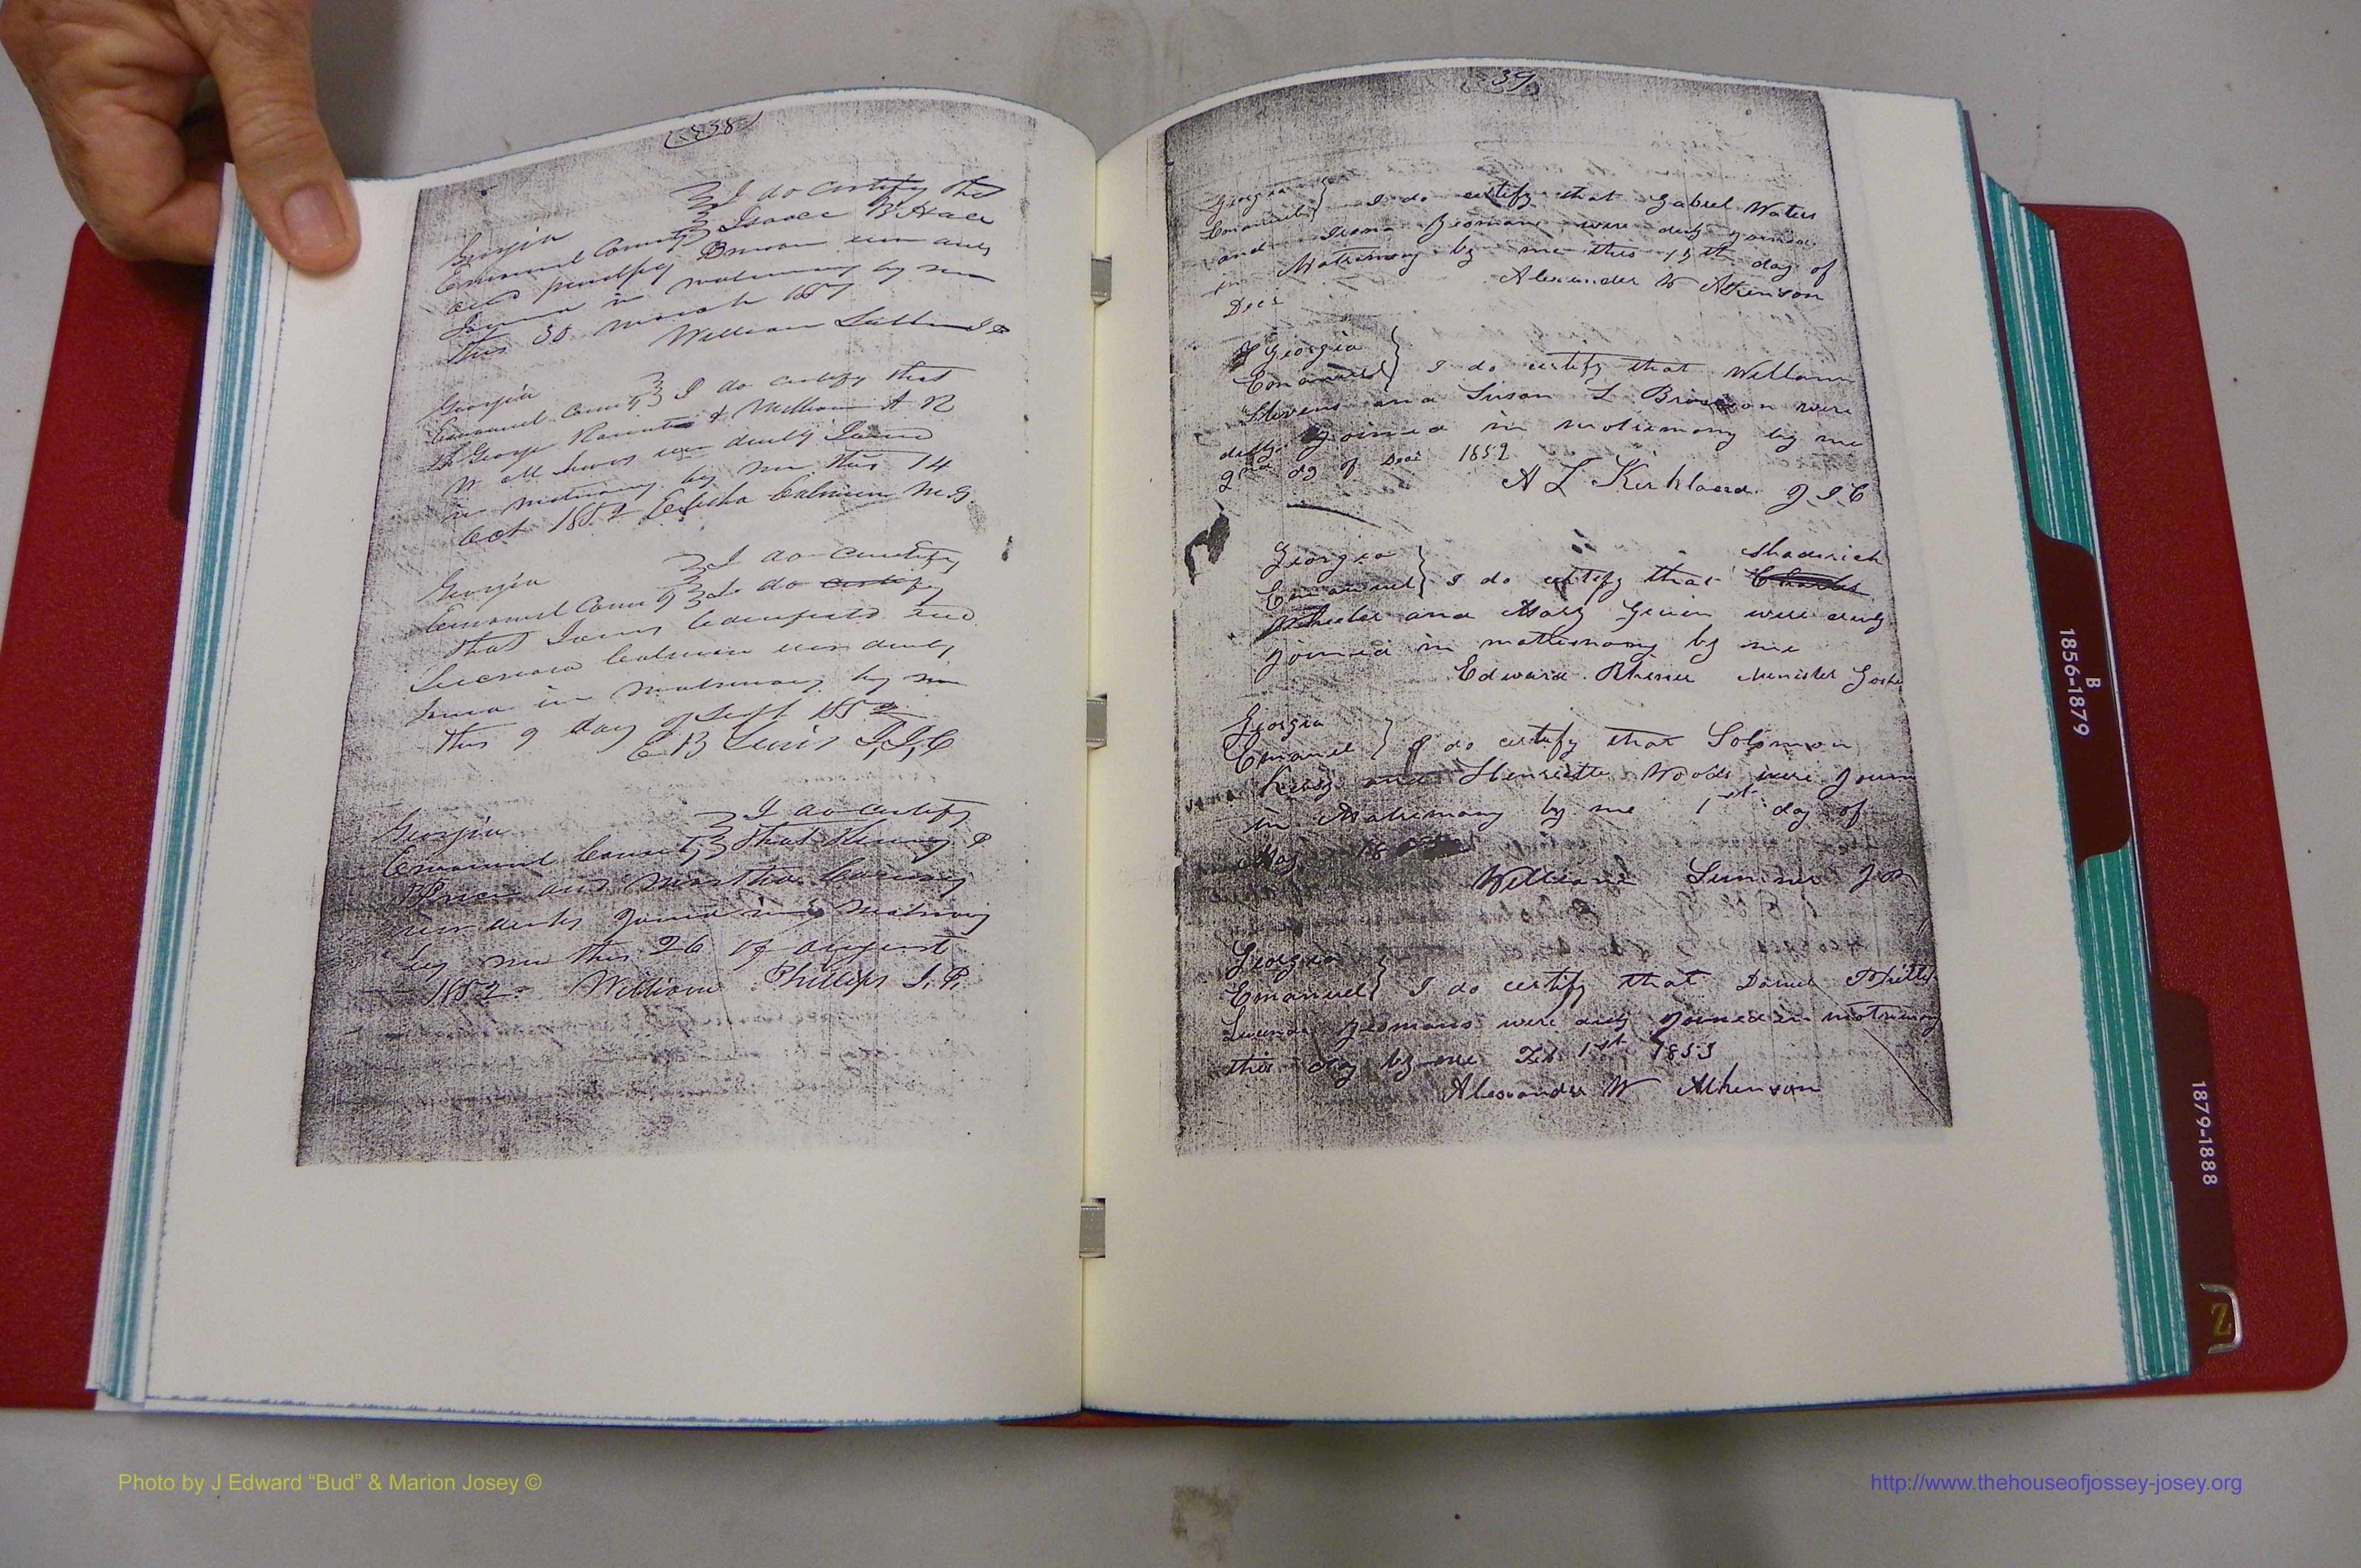 38
Georgia
Emanuel County } I do certify that
Isaac
were duly
Joined in matrimony by me
this 30 March 1857
William
Georgia
Emanuel County } I do certify that
George & William A R
were duly Joined
in matrimony by me this 14
Oct 1852 Elisha Coleman M.G.
Georgia } I do certify
Emanuel County } I do certify
that James and
Coleman were duly
Joined in matrimony by me
this 9 day of Sept 1852
E B Lewis J,I,C
Georgia } I do certify
Emanuel County } that
Price and Martha
were duly Joined in matrimony
by me this 26 of August
1852 William Phillips J.P.
39
Georgia
Emanuel } I do certify that Gabriel Waters
and Yeomans were duly joined
in Matrimony by me this 15th day of
Dec
Alexander W Atkinson
Georgia
Emanuel } I do certify that William
Stevens and Susan L were
duly Joined in matrimony by me
2nd dy of Dec 1852
A L Kirkland J.I.C
Georgia Shaderich
Emanuel } I do certify that Charles
Wheeler and Mary were duly
joined in matrimony by me
Edward Minister
Georgia
Emanuel } I do certify that Solomon
and Henrietta Woods were Join
in Matrimony by me 1st day of
May 18
William Sumner J P
Georgia
Emanuel } I do certify that Daniel
Yeomans were duly Joined in matrimony
this day by me Feb 1st 1853
Alexander W Atkinson
B
1856-1879
1879-1888
Z
Photo by J Edward “Bud” & Marion Josey ©
http://www.thehouseofjossey-josey.org